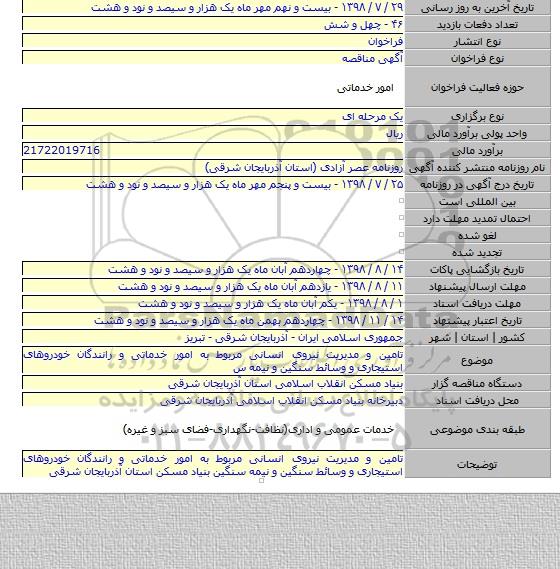 تاریخ آخرین به روز رسانی ۲۹ / ۷ / ۱۳۹۸ - بیست و نهم مهر ماه یک هزار و سیصد و نود و هشت
تعداد دفعات بازدید ۴۶ - چهل و شش
نوع انتشار فراخوان
نوع فراخوان آگهی مناقصه
حوزه فعالیت فراخوان امور خدماتی
نوع برگزاری یک مرحله ای
واحد پولی برآورد مالی ریال
برآورد مالی 21722019716
نام روزنامه منتشر کننده آگهی روزنامه عصر آزادی (استان آذربایجان شرقی)
تاریخ درج آگهی در روزنامه ۲۵ / ۷ / ۱۳۹۸ - بیست و پنجم مهر ماه یک هزار و سیصد و نود و هشت
بین المللی است
احتمال تمدید مهلت دارد
لغو شده
تجدید شده
تاریخ بازگشایی پاکات ۱۴ / ۸ / ۱۳۹۸ - چهاردهم آبان ماه یک هزار و سیصد و نود و هشت
مهلت ارسال پیشنهاد ۱۱ / ۸ / ۱۳۹۸ - یازدهم آبان ماه یک هزار و سیصد و نود و هشت
مهلت دریافت اسناد ۱ / ۸ / ۱۳۹۸ - یکم آبان ماه یک هزار و سیصد و نود و هشت
تاریخ اعتبار پیشنهاد ۱۴ / ۱۱ / ۱۳۹۸ - چهاردهم بهمن ماه یک هزار و سیصد و نود و هشت
کشور | استان | شهر جمهوری اسلامی ایران - آذربایجان شرقی - تبریز
موضوع تامین و مدیریت نیروی انسانی مربوط به امور خدماتی و رانندگان خودروهای
استیجاری و وسائط سنگین و نیمه س
دستگاه مناقصه گزار بنیاد مسکن انقلاب اسلامی استان آذربایجان شرقی
محل دریافت اسناد دبیرخانه بنیاد مسکن انقلاب اسلامی آذربایجان شرقی
طبقه بندی موضوعی خدمات عمومی و اداری(نظافت-نگهداری-فضای سبز و غیره)
توضیحات تامین و مدیریت نیروی انسانی مربوط به امور خدماتی و رانندگان خودروهای
استیجاری و وسائط سنگین و نیمه سنگین بنیاد مسکن استان آذربایجان شرقی